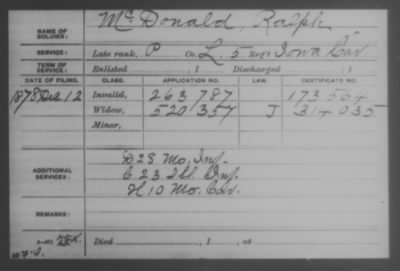 NAME OF SOLDIER: McDonald, Ralph
SERVICE: Late rank, P Co. L, 5 Reg't Iowa Cav
TERM OF SERVICE: Enlisted , 1 Discharged , 1
DATE OF FILING. CLASS. APPLICATION NO. LAW. CERTIFICATE NO.
1878 Dec 12 Invalid, 263787 173564
Widow, 520357 J 314035
Minor,
ADDITIONAL SERVICES: D 28 Mo. Inf.
C 23 Ill. Inf.
H 10 Mo. Cav.
REMARKS:
Died , 1 , at